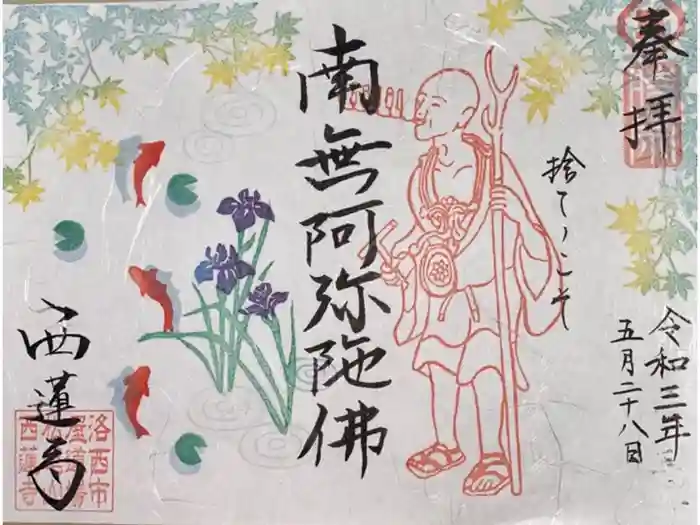 奉拝
捨てゝこそ
令和三年
五月二十八日
南無阿弥陀佛
西蓮寺
洛西市
西蓮寺